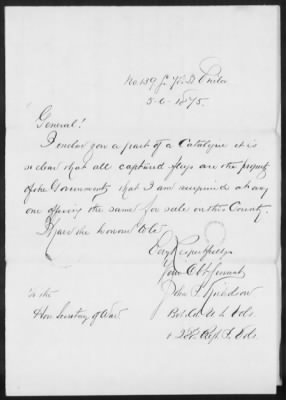 No. 139 S. 7th St. Phila
5-6-1875.
General!
I enclose you a part of a Catalogue it is
so clear that all captured flags are the property
of the Government, that I am surprised at any
one offering the same for sale in this County.
I have the honour to be
Very Respectfully
Your Obt Servant
John S.
Bvt. Col. U.S. Vols.
To the
Hon. Secretary of War